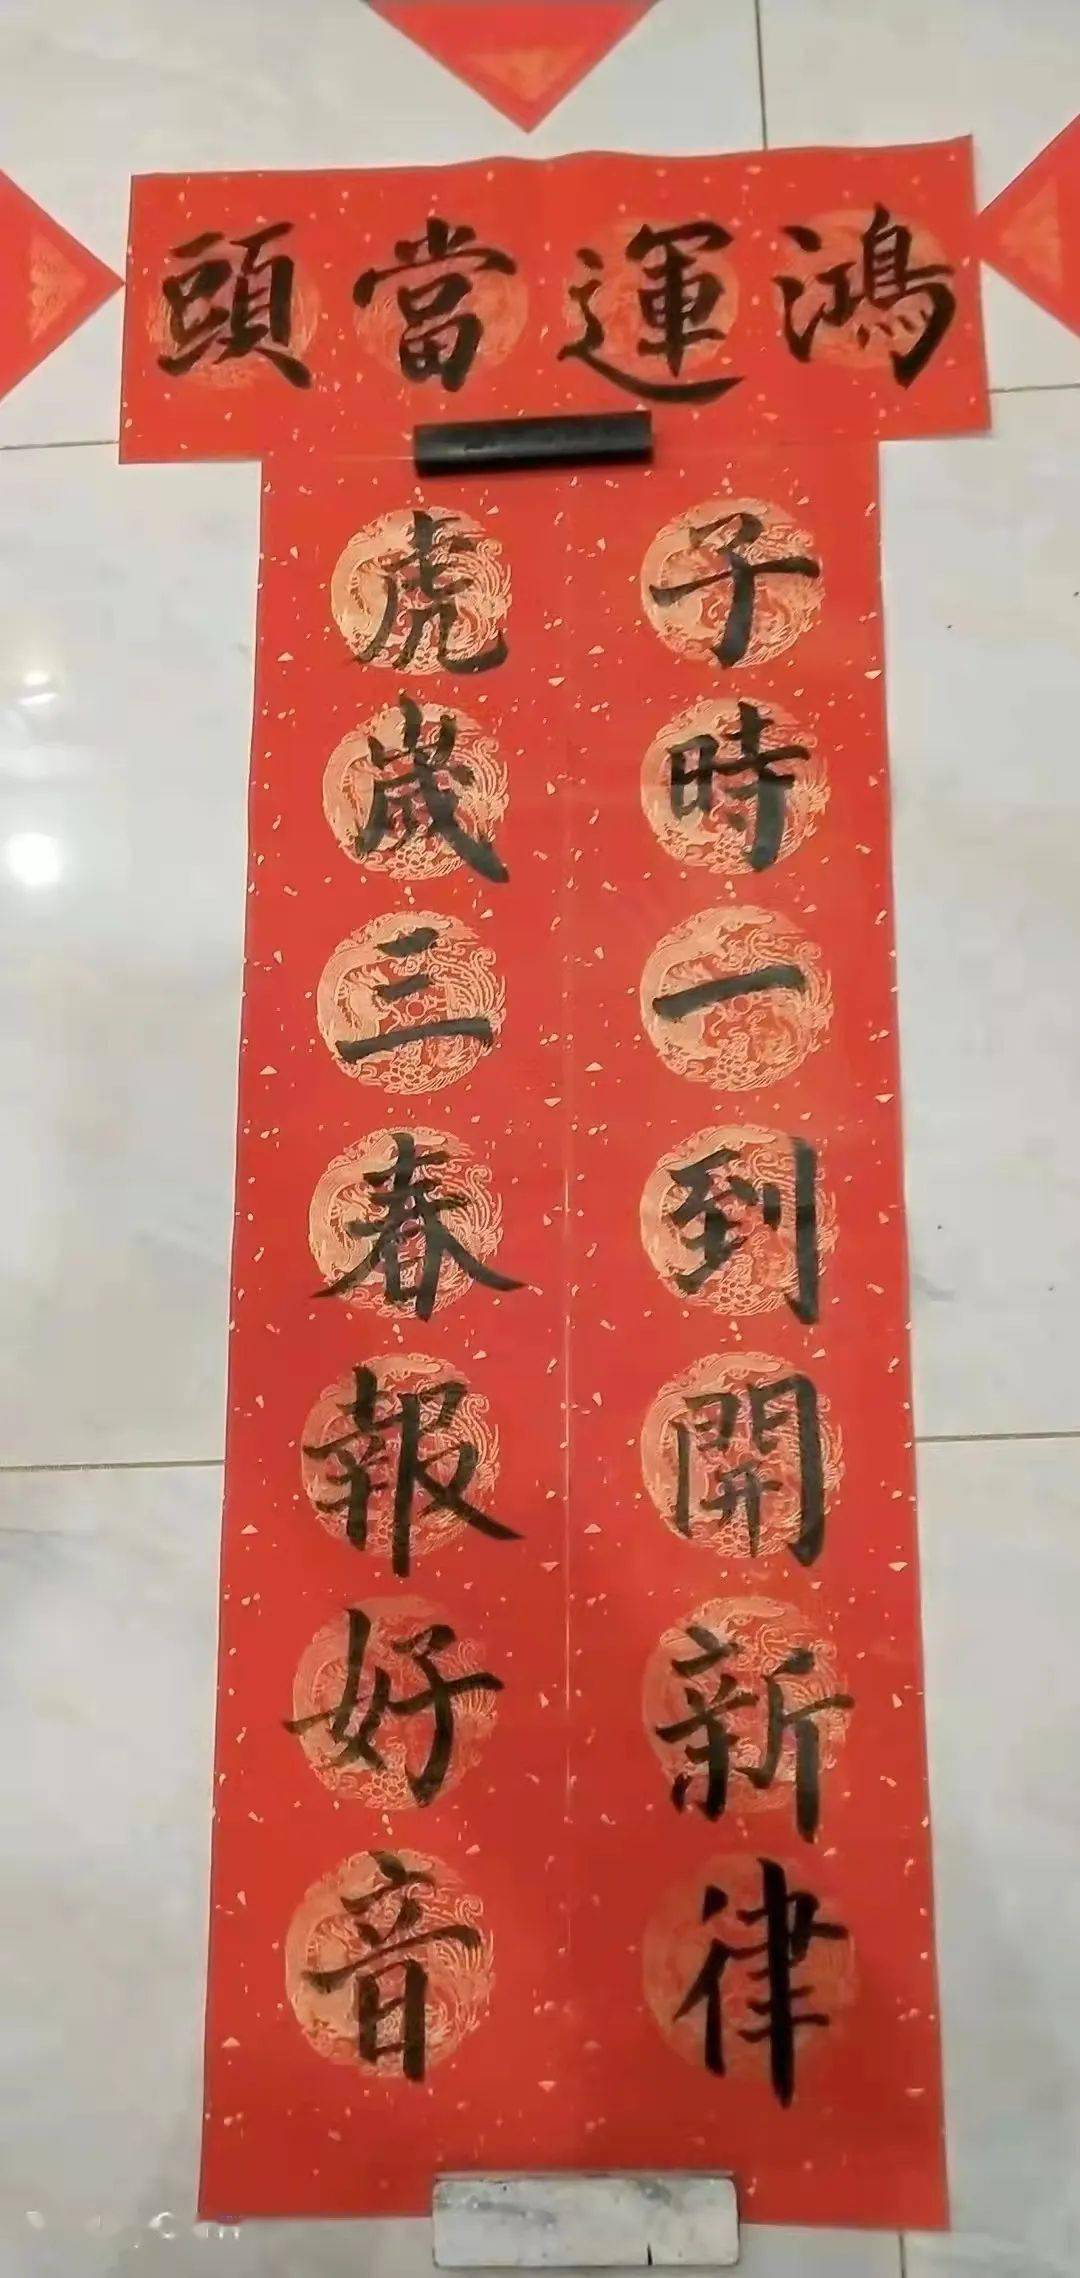 鴻運當頭
子時一到開新律
虎歲三春報好音